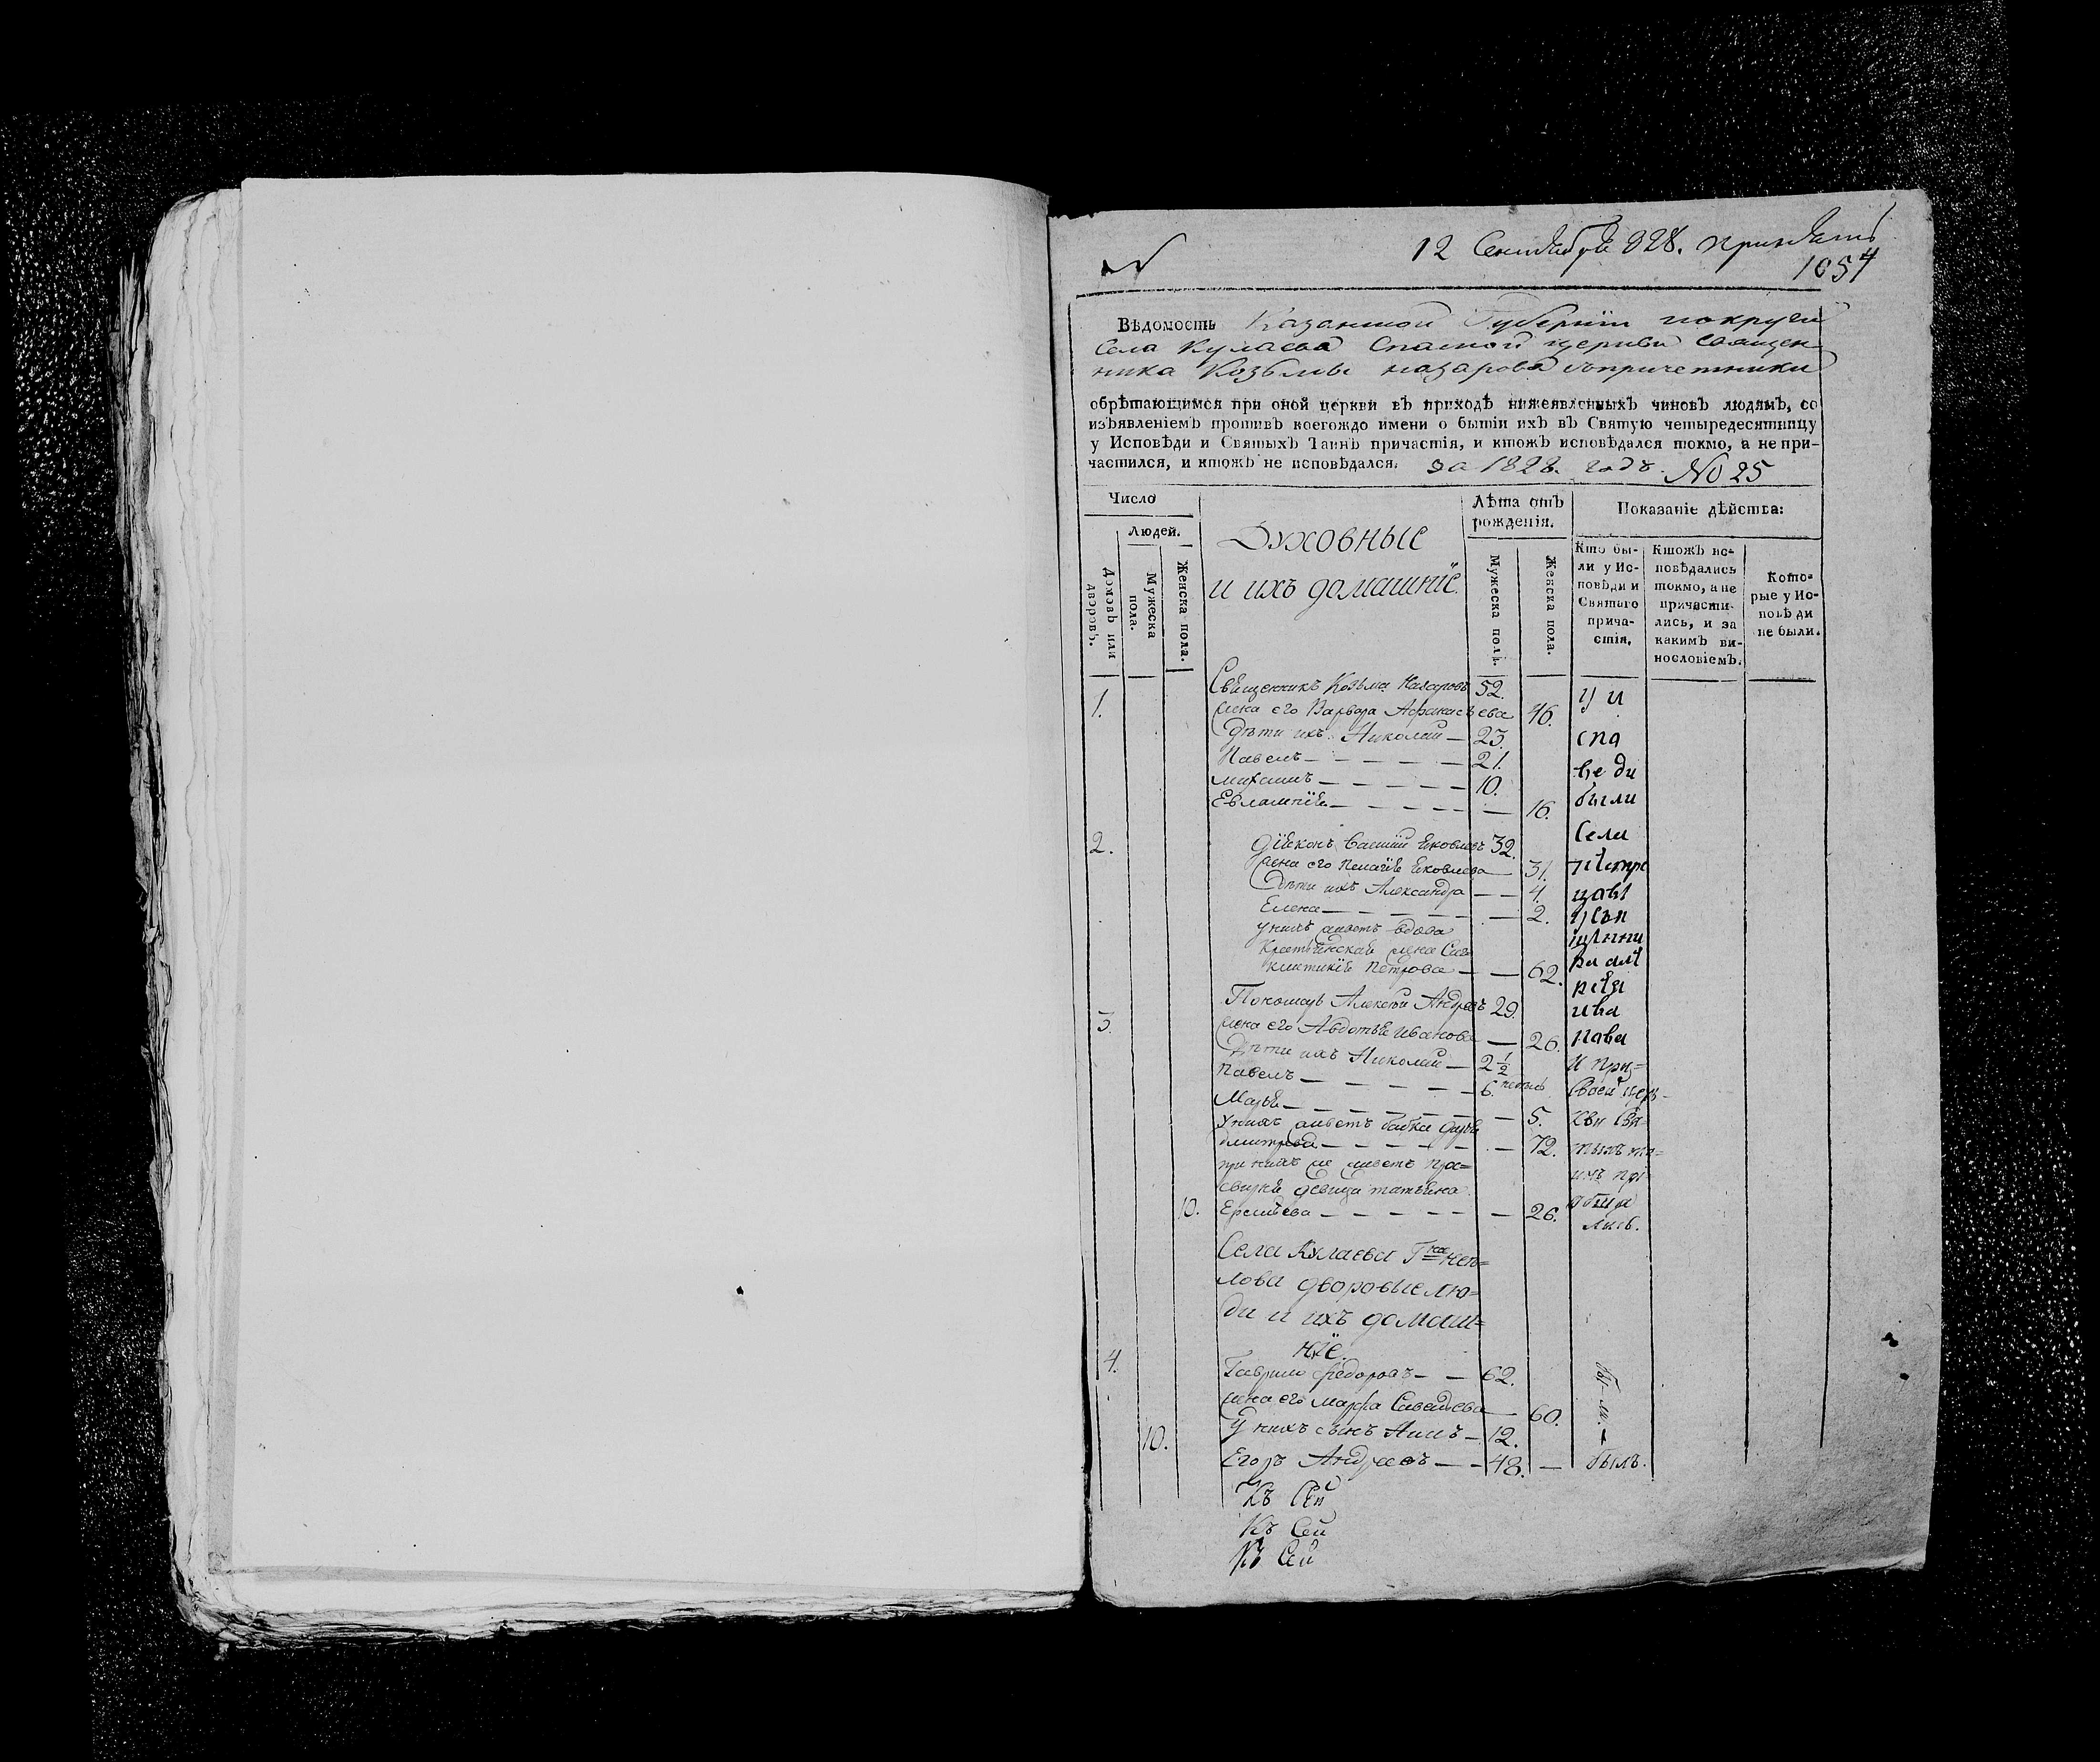 12 Сентября 828. принять
1054
Вѣдомость Казанской Губернiи покруги
Села Кулаева Спаской церкви Священ-
ника Козьмы назарова спричетники
обрѣтающимся при оной церкви въ приходѣ нижеявленныхъ чиновъ людямъ, со
изъявленiемъ противъ коегождо имени о бытiи ихъ въ Святую четыредесятницу
у Исповѣди и Святыхъ Таинъ причастiя, и ктожъ исповѣдался токмо, а не при-
частился, и ктожъ не исповѣдался. за 1828. годъ. No 25
Число
Людей.
Домовъ или дворовъ.
Мужеска пола.
Женска пола.
Духовные
и ихъ домашнiе.
Лѣта отъ рожденiя.
Мужеска пола.
Женска пола.
Показанiе дѣйства:
Кто бы-
ли у Ис-
повѣди и
Святаго
прича-
стiя.
Ктожъ ис-
повѣдались
токмо, а не
причасти-
лись, и за
какимъ ви-
нословiемъ.
Кото-
рые у Ис-
повѣди
не были.
Священникъ Козьма Назаровъ 52. у и
1. жена его Варвара Афанасьева 46.
Дѣти ихъ Николай — 23. спа
Павелъ — 21. ве ди
михаилъ — 10.
Евлампiя — 16. были
2. дiяконъ Василiй Яковлевъ 32. Села
жена его Пелагiя Яковлева — 31.
Дѣти ихъ Александра — 4.
Елена — 2.
унихъ живетъ вдова
жена
Петрова — 62.
Пономарь Алексѣй Андреевъ 29. ива
3. жена его Авдотья Иванова — 26. нова
Дѣти ихъ Николай — 2 1/2 и при=
Павелъ — 6. своей цер-
Марья — 5. кви свя=
унихъ живетъ бабка дарья
дмитрева — 72. тымъ та=
при нихъ же живетъ про= инъ прi
свирня девица татьяна
10. Еремѣева — 26. обща
лись.
Села Кулаева Гна неп=
лова дворовые лю=
ди и ихъ домаш=
нiе.
4. Гаврило Федоровъ — 62.
жена его марфа Савельева — 60.
10. У нихъ сынъ — 12.
Егоръ Андреевъ — 48. — былъ.
Къ Сей
Къ Сей
Къ Сей